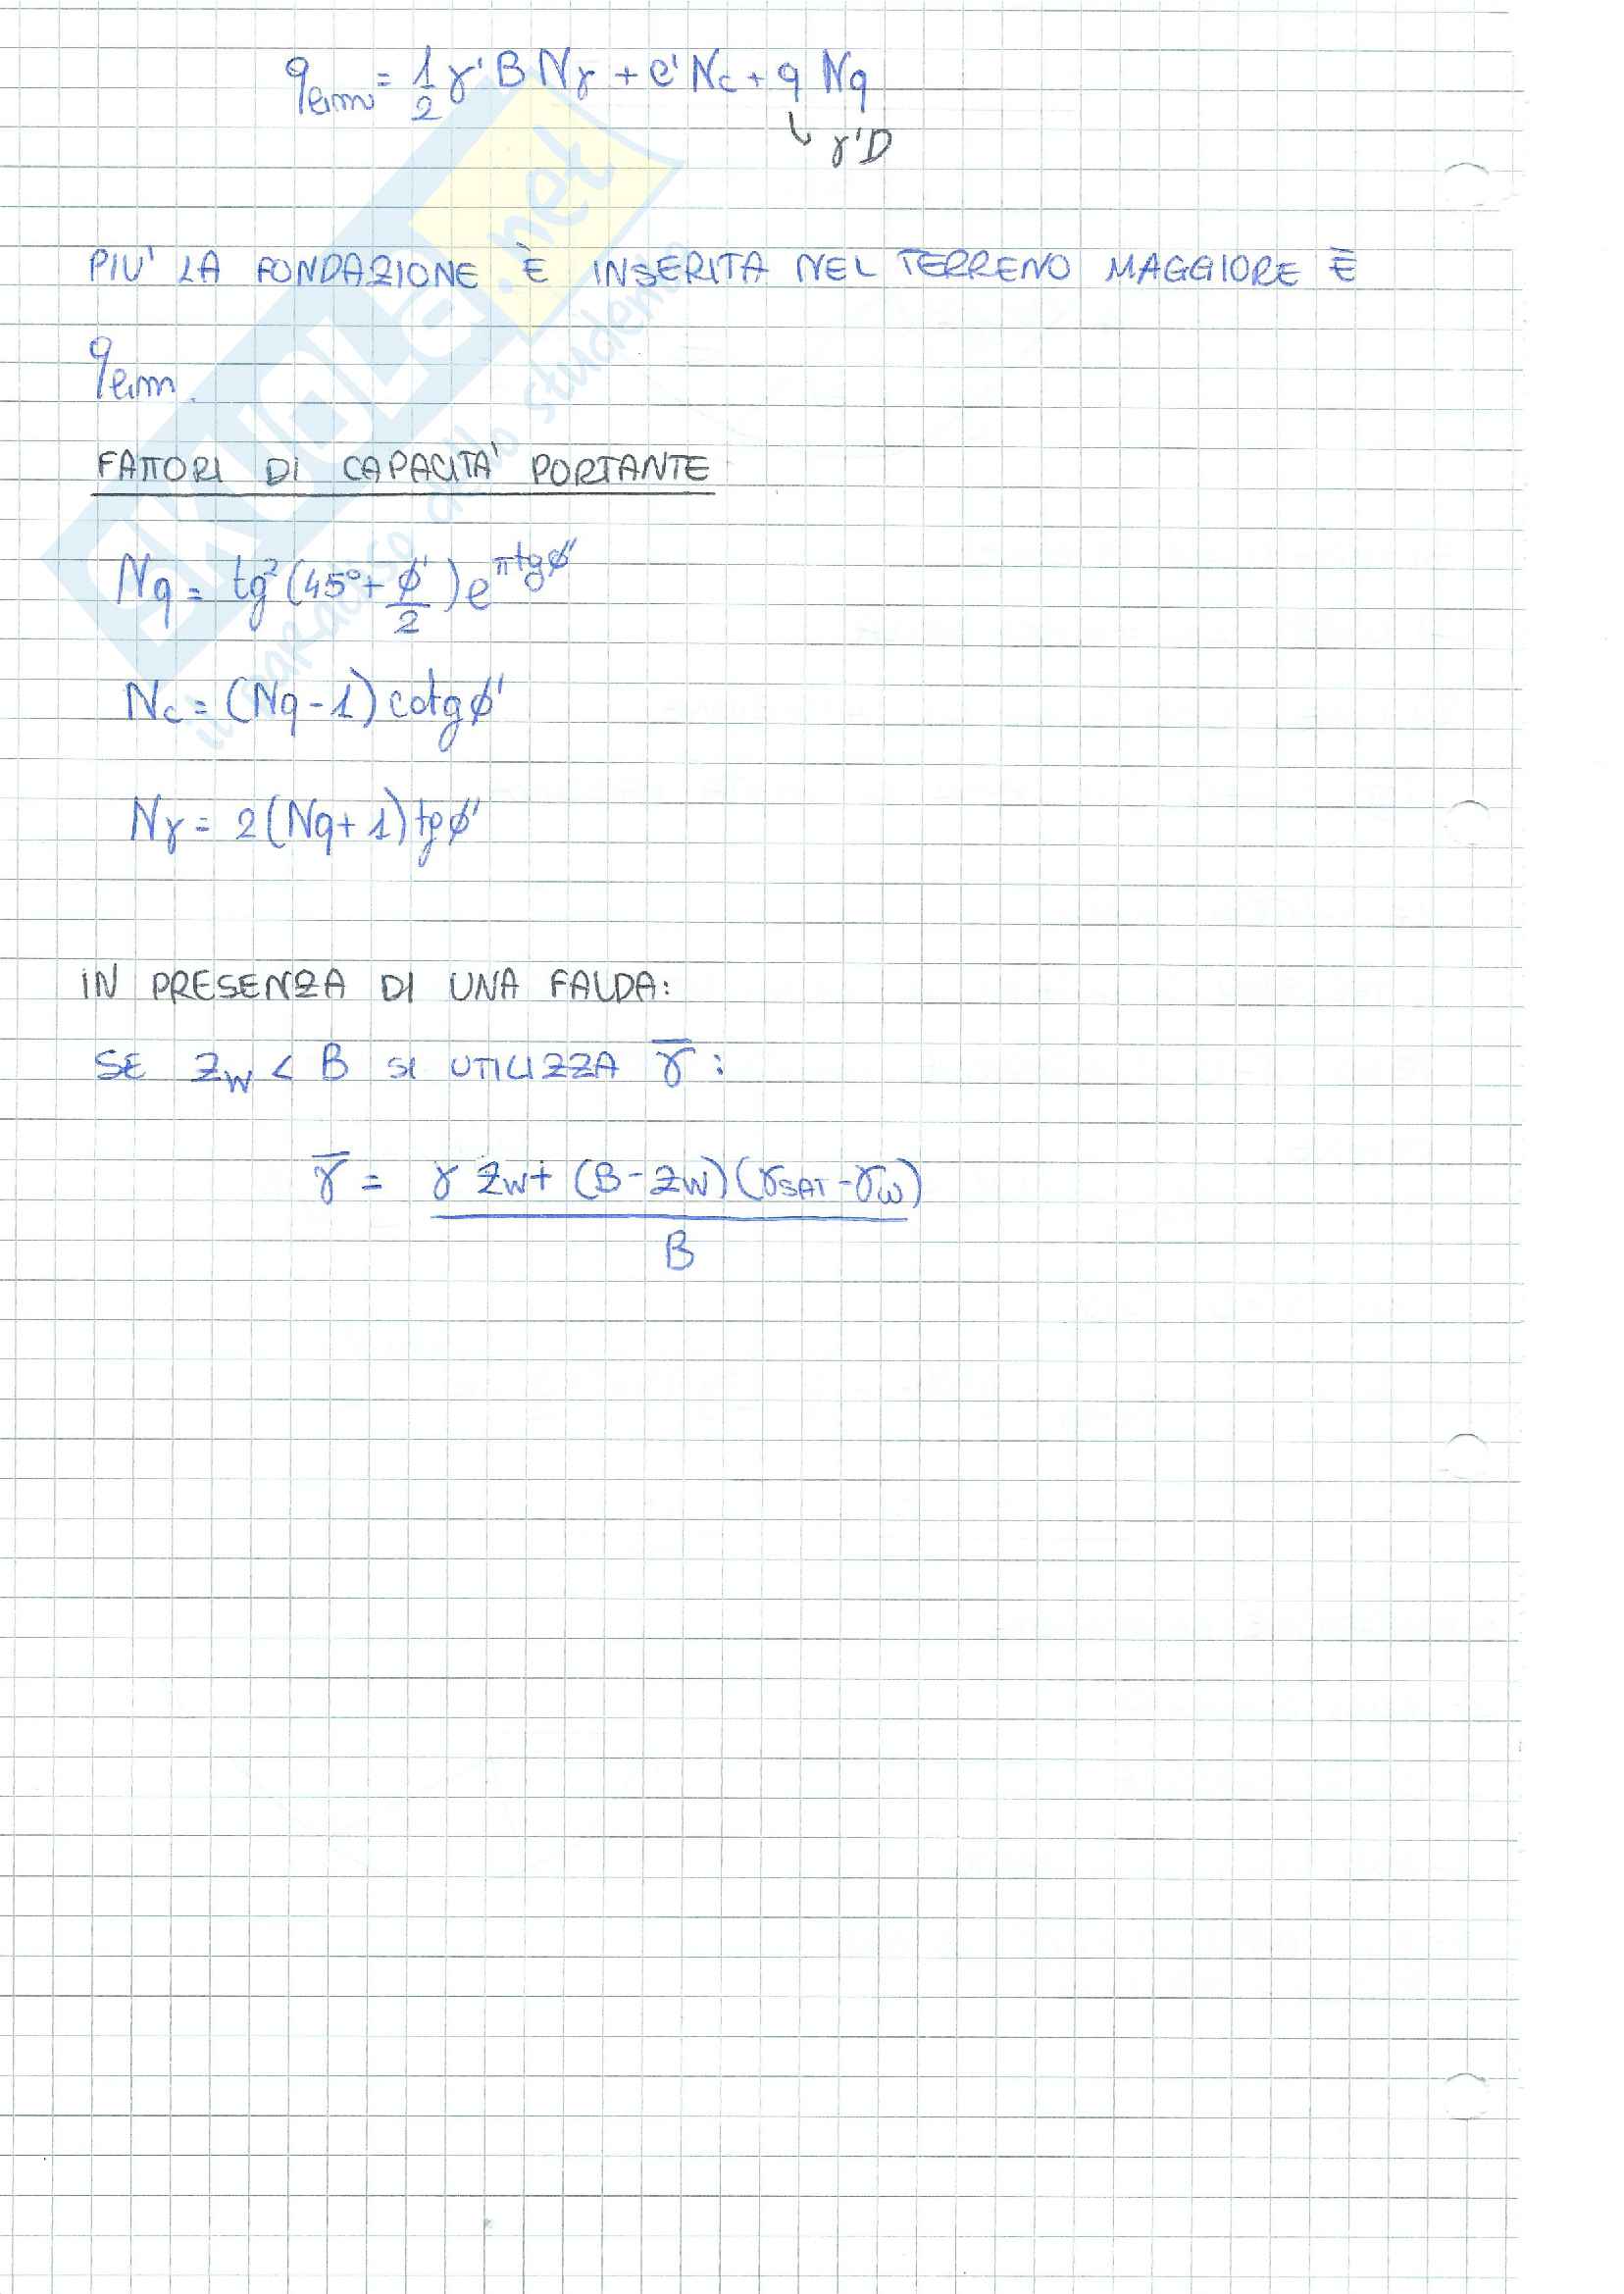 q_lim = 1/2 γ' B Nγ + c' Nc + q Nq
↳ γ'D
PIU' LA FONDAZIONE È INSERITA NEL TERRENO MAGGIORE È
q_lim.
FATTORI DI CAPACITA' PORTANTE
Nq = tg²(45°+ ϕ'/2) e^(π tgϕ')
Nc = (Nq - 1) cotgϕ'
Nγ = 2(Nq + 1) tgϕ'
IN PRESENZA DI UNA FALDA:
SE Zw < B SI UTILIZZA γ̅ :
γ̅ = (γ Zw + (B - Zw)(γSAT - γw)) / B
SKUOLA.net
il paradiso dello studente